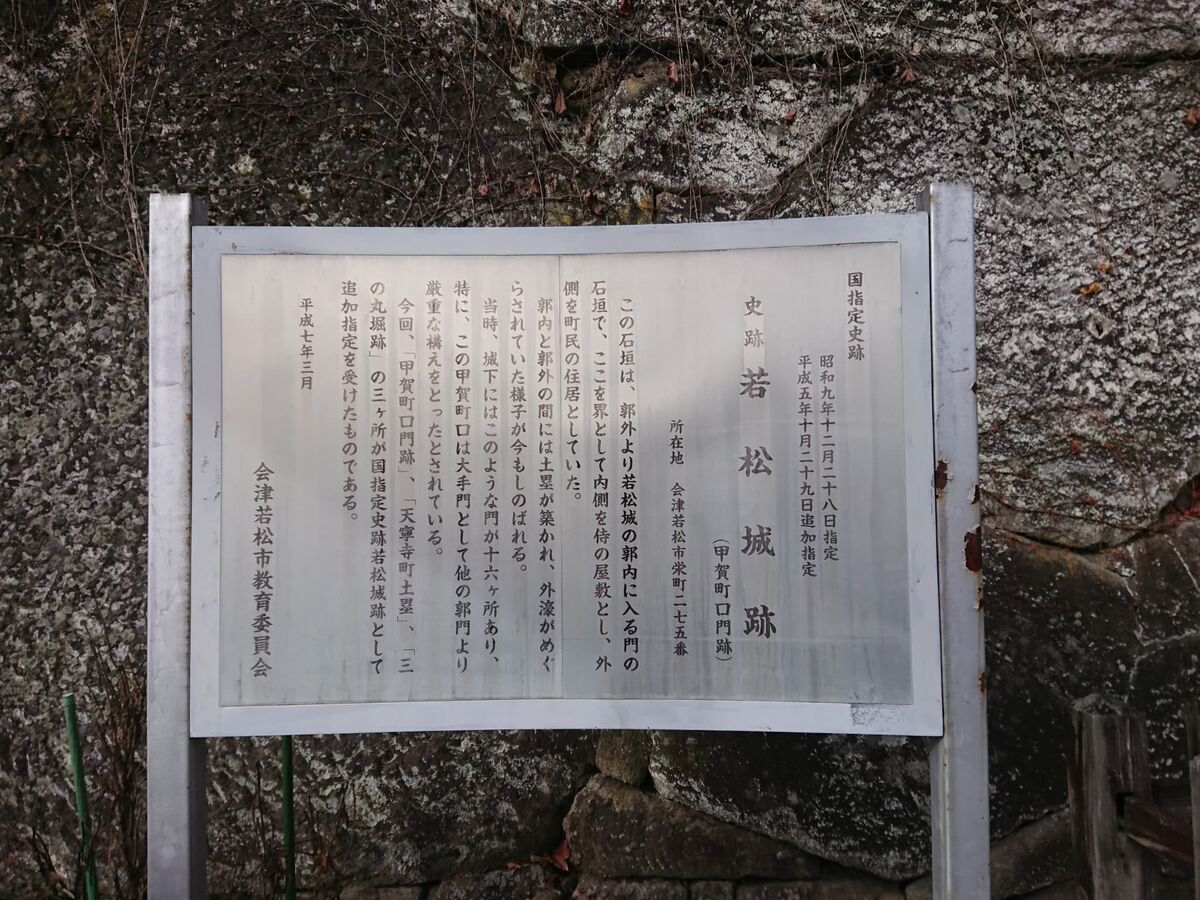 国指定史跡
昭和九年十二月二十八日指定
平成五年十月二十九日追加指定
史跡若松城跡
（甲賀町口門跡）
所在地　会津若松市栄町二七五番
この石垣は、郭外より若松城の郭内に入る門の
石垣で、ここを界として内側を侍の屋敷とし、外
側を町民の住居としていた。
郭内と郭外の間には土塁が築かれ、外濠がめぐ
らされていた様子が今もしのばれる。
当時、城下にはこのような門が十六ヶ所あり、
特に、この甲賀町口は大手門として他の郭門より
厳重な構えをとったとされている。
今回、「甲賀町口門跡」、「天寧寺町土塁」、「三
の丸堀跡」の三ヶ所が国指定史跡若松城跡として
追加指定を受けたものである。
平成七年三月
会津若松市教育委員会